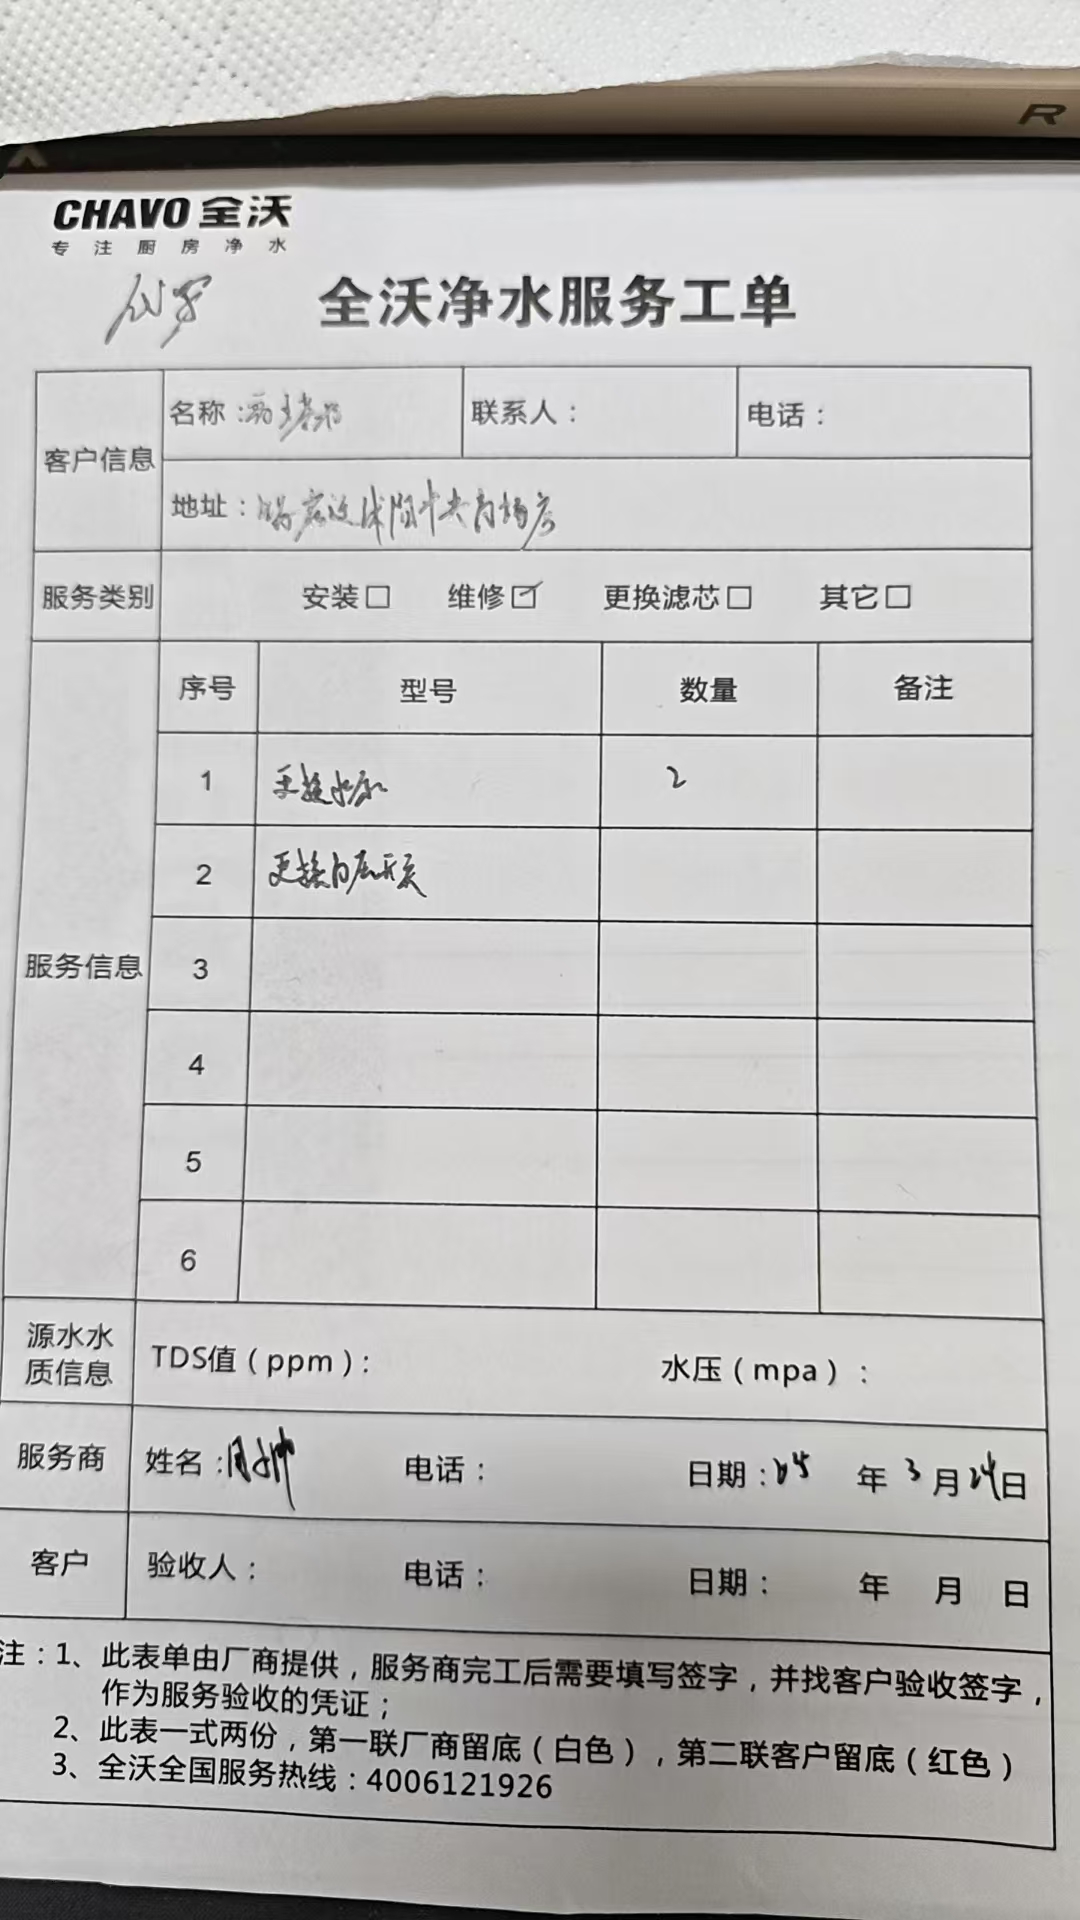 R
CHAVO 全沃
专注厨房净水
全沃净水服务工单
客户信息
名称：
联系人：
电话：
地址：
服务类别
安装□ 维修☑ 更换滤芯□ 其它□
服务信息
序号 型号 数量 备注
1 更换水泵 2
2 更换高压开关
3
4
5
6
源水水质信息
TDS值（ppm）： 水压（mpa）：
服务商 姓名： 电话： 日期： 年 3 月 24 日
客户 验收人： 电话： 日期： 年 月 日
注：1、此表单由厂商提供，服务商完工后需要填写签字，并找客户验收签字，
作为服务验收的凭证；
2、此表一式两份，第一联厂商留底（白色），第二联客户留底（红色）
3、全沃全国服务热线：4006121926